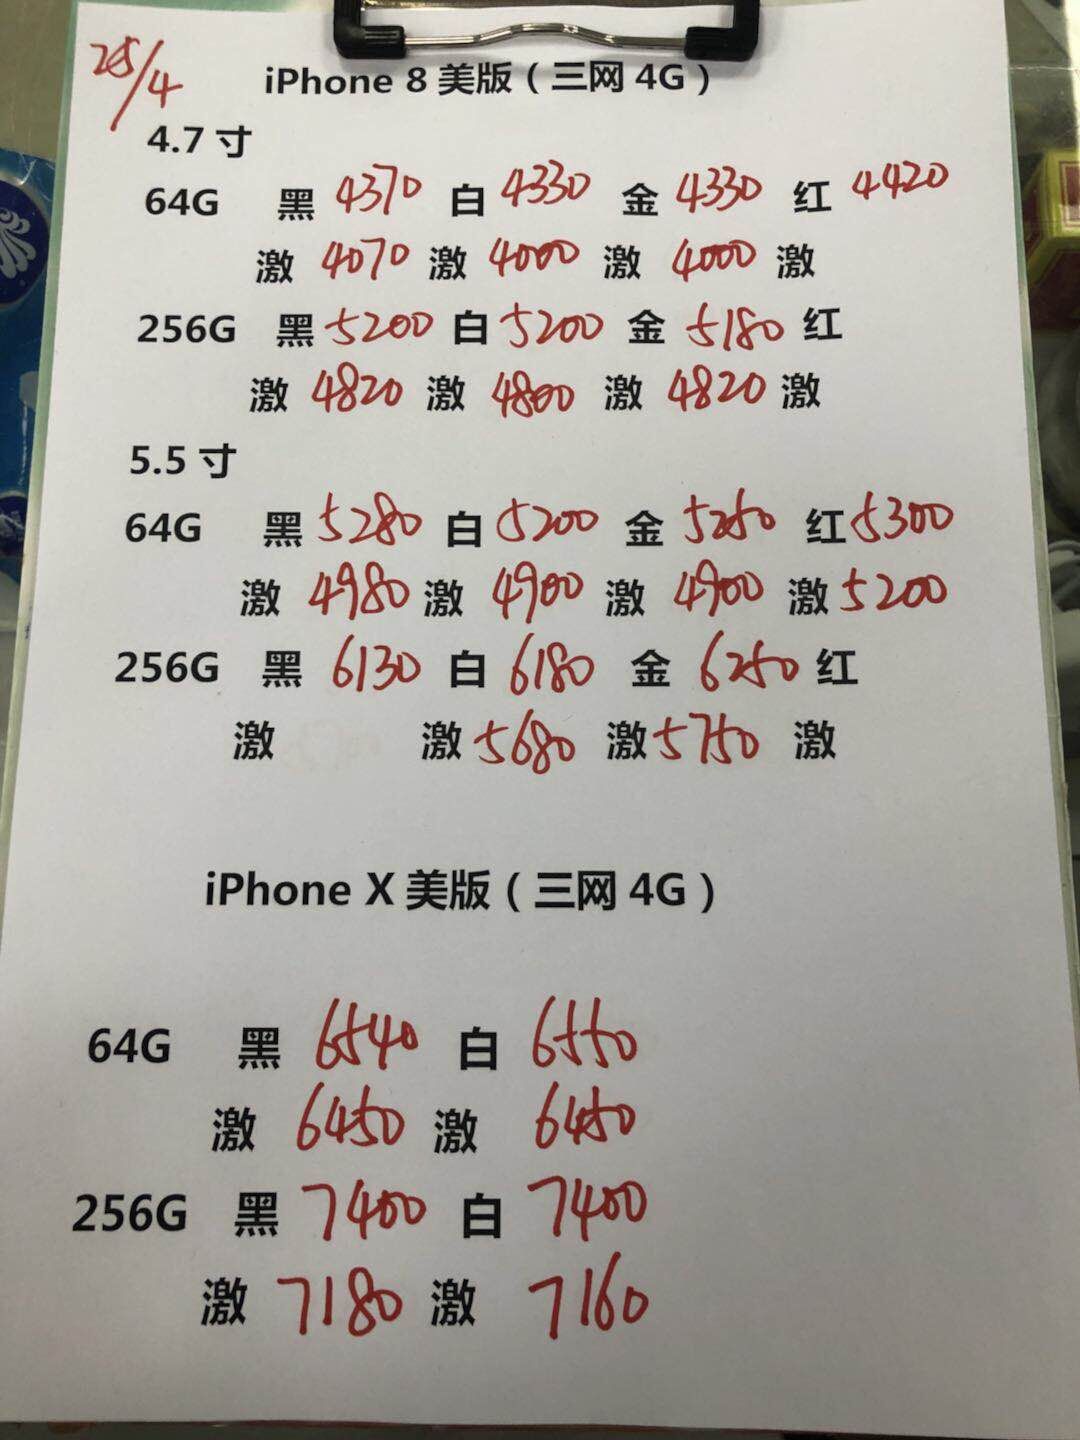 25/4
iPhone 8 美版（三网 4G）
4.7 寸
64G 黑 4370 白 4330 金 4330 红 4420
激 4070 激 4000 激 4000 激
256G 黑 5200 白 5200 金 5180 红
激 4820 激 4800 激 4820 激
5.5 寸
64G 黑 5280 白 5200 金 5250 红 5300
激 4980 激 4900 激 4900 激 5200
256G 黑 6130 白 6180 金 6250 红
激 激 5680 激 5750 激
iPhone X 美版（三网 4G）
64G 黑 6540 白 6550
激 6450 激 6450
256G 黑 7400 白 7400
激 7180 激 7160